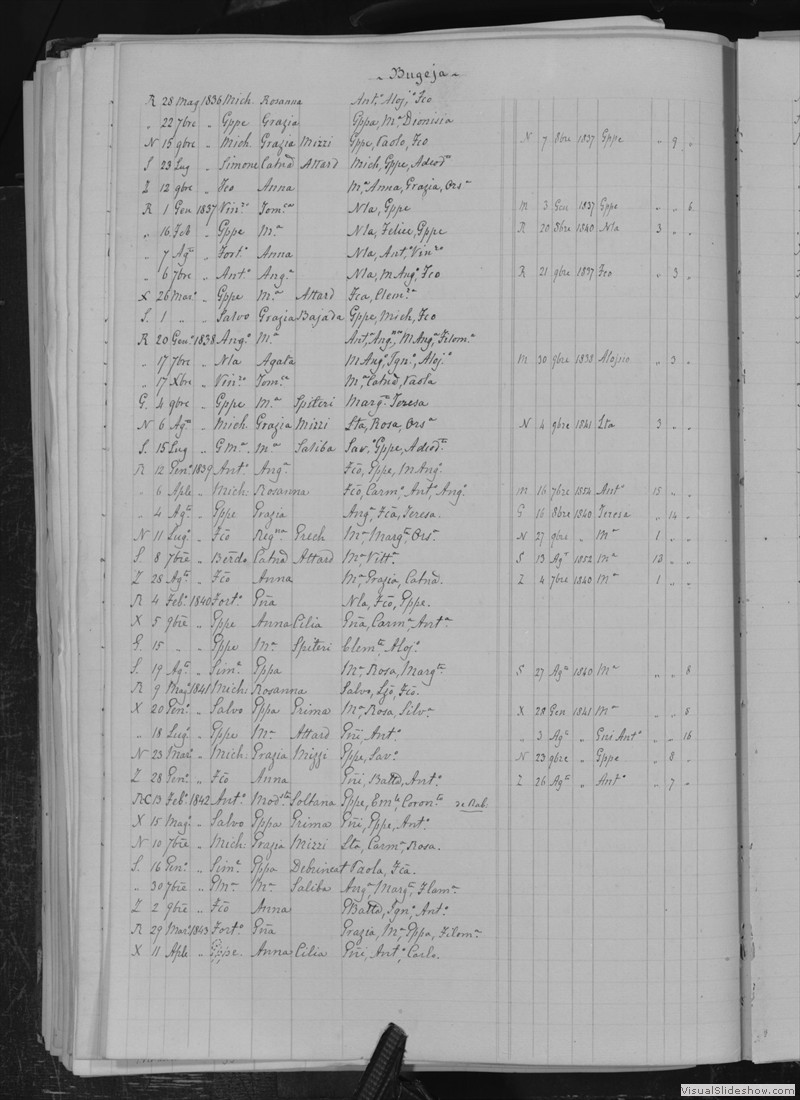 Bugeja
R 28 Mag 1836 Mich. Rosanna Ant.º Aloj.º Fco
" 22 7bre " Gppe Grazia Gppa, M.ª Dionisia
N 15 9bre " Mich. Grazia Mizzi Gppe, Paolo, Fco N 7 8bre 1837 Gppe " 9 "
S 23 Lug " Simone Catnd Attard Mich, Gppe, Adeod.º
Z 12 9bre " Fco Anna M.ª Anna, Grazia, Ors.ª
R 1 Gen 1837 Vin.zo Tom.ca Nla, Gppe M 3 Gen 1837 Gppe " " 6
" 16 Feb " Gppe M.ª Nla, Felice, Gppe R 20 8bre 1840 Nla 3 " "
" 7 Ag.to " Fort.º Anna Nla, Ant.º Vin.zo
" 6 7bre " Ant.º Ang.ª Nla, M Ang.º, Fco R 21 9bre 1837 Fco " 3 "
X 26 Mar.º " Gppe M.ª Attard Fca, Clem.za
S. 1 " " Salvo Grazia Bajada Gppe, Mich, Fco
R 20 Gen.º 1838 Ang.º M.ª Ant.ª Ang.ca M Ang.º Filom.ª
" 17 7bre " Nla Agata M Ang.º, Ign.º, Aloj.º M 30 9bre 1838 Alojsio " 3 "
" 17 Xbre " Vin.zo Tom.ca M.ª Catnd, Paola
G. 4 9bre " Gppe M.ª Spiteri Marg.ta Teresa
N 6 Ag.to " Mich. Grazia Mizzi Lta, Rosa, Ors.ª N 4 9bre 1841 Lta 3 " "
S. 15 Lug " G M.ª M.ª Saliba Sav.º Gppe, Adeod.ta
R 12 Gen.º 1839 Ant.º Ang.ª Fcõ, Gppe, M Ang.º
" 6 Aple " Mich: Rosanna Fcõ, Carm.º, Ant.º, Ang.º M 16 7bre 1854 Ant.º 15 " "
" 4 Ag.to " Gppe Grazia Ang.ª, Fca, Teresa. G 16 8bre 1840 Teresa " 14 "
N 11 Lug.º " Fcõ Reg.na Grech M.ª Marg.ta, Ors.ª N 27 9bre " M.ª 1 " "
S. 8 7bre " Berdo Catnd Attard M.ª Vitt.ª S 13 Ag.to 1852 M.ª 13 " "
Z 28 Ag.to " Fcõ Anna M.ª, Grazia, Catnd. Z 4 7bre 1840 M.ª 1 " "
R 4 Feb.º 1840 Fort.º Gña Nla, Fcõ, Gppe.
X 5 9bre " Gppe Anna Cilia Gña, Carm.ª, Ant.ª
G. 15 " " Gppe M.ª Spiteri Clem.te, Aloj.º
S. 19 Ag.to " Sim.e Gppa M.ª, Rosa, Marg.ta S 27 Ag.to 1840 M.ª " " 8
R 9 Mag.º 1841 Mich: Rosanna Salvo, Lzõ, Fcõ.
X 20 Gen.º " Salvo Gppa Grima M.ª, Rosa, Silv.ª X 28 Gen 1841 M.ª " " 8
" 18 Lug.º " Gppe M.ª Attard Gni, Ant.º " 3 Ag.to " Gni Ant.º " " 16
N 23 Mar.º " Mich: Grazia Mizzi Gppe, Sav.º N 23 9bre " Gppe " 8 "
Z 28 Gen.º " Fcõ Anna Gni, Battd, Ant.º Z 26 Ag.to " Ant.º " 7 "
RC 13 Feb.º 1842 Ant.º Mod.ta Soltana Gppe, Em.le Coron.ta de Rab.
X 15 Mag.º " Salvo Gppa Grima Gni, Gppe, Ant.º
N 10 7bre " Mich: Grazia Mizzi Lta, Carm.ª, Rosa.
S. 16 Gen.º " Sim.e Gppa Debrincat Paola, Fca.
" 30 7bre " G M.ª M.ª Saliba Ang.ª Marg.ta
Z 2 9bre " Fcõ Anna GBattd, Ign.º, Ant.º
R 29 Mar.º 1843 Fort.º Gña Grazia, M.ª, Gppa, Filom.ª
X 11 Aple " Gppe. Anna Cilia Gni, Ant.º, Carlo.
VisualSlideshow.com